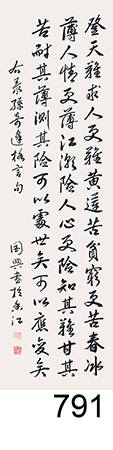 登天難求人更難黃連苦貧窮更苦春冰
薄人情更薄江湖險人心更險知其難甘其
苦耐其薄測其險可以處世矣可以應變矣
右錄孫奇逢格言句
國興書於香江
791